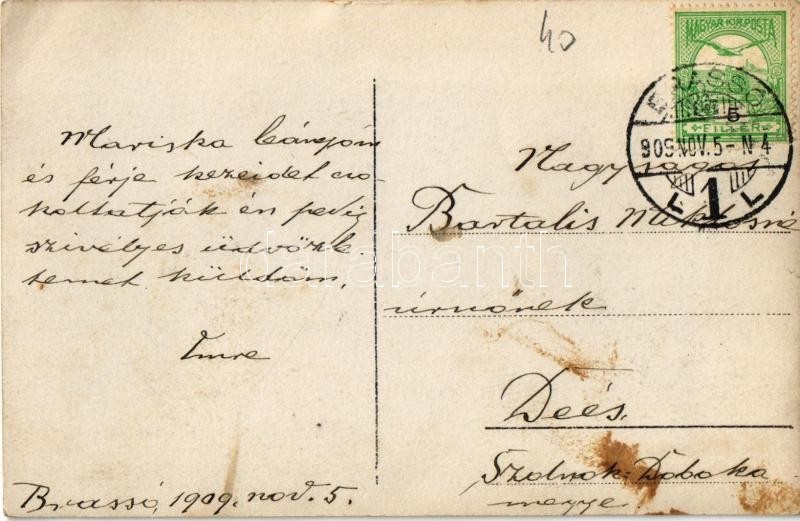 40
MAGYAR KIR. POSTA
BRASSÓ
5
FILLER
909 NOV. 5 - N 4
1
Mariska leányom
és férje kezeidet cso-
koltatják én pedig
szívélyes üdvözle-
temet küldöm.
Imre
Brassó, 1909. nov. 5.
Nagyságos
Bartalis Miklósné
úrnőnek
Deés.
Szolnok-Doboka
megye.
darabanth